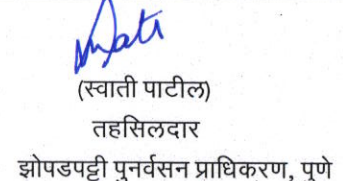 (स्वाती पाटील)
तहसिलदार
झोपडपट्टी पुनर्वसन प्राधिकरण, पुणे